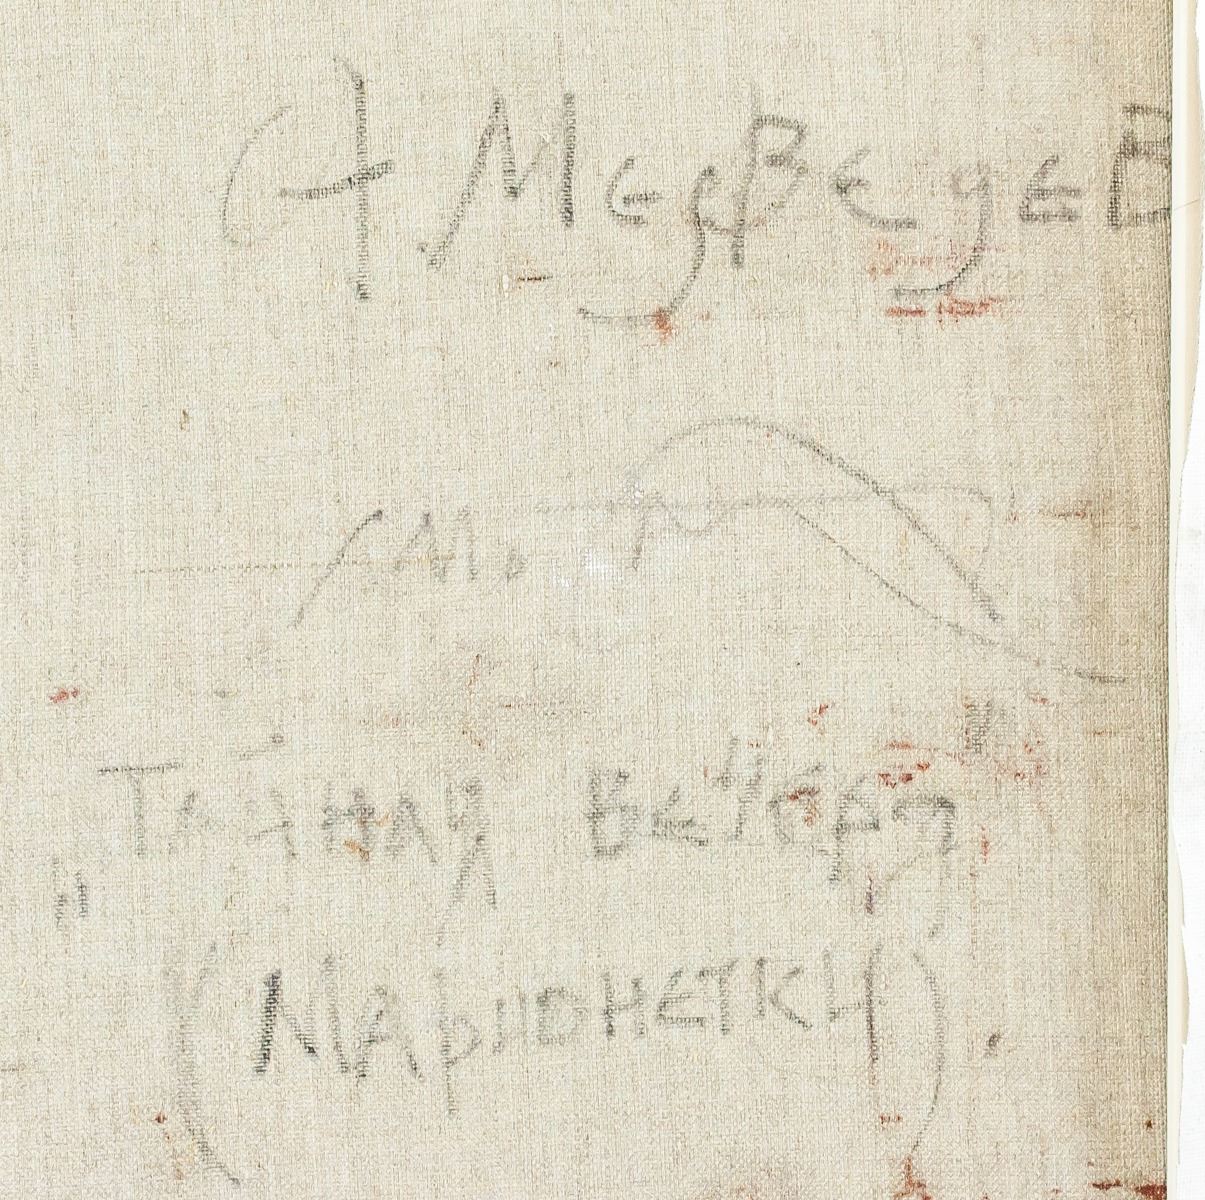 А Медведев
"Тайная Вечеря"
(Марионетки)